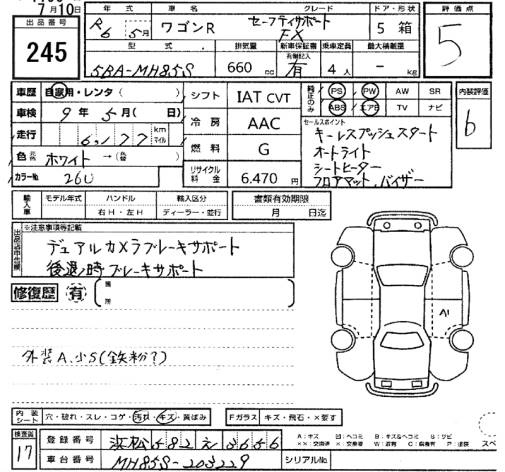 7月10日
出品番号
245
年式 車名 グレード ドア・形状
R6 5月 ワゴンR セーフティサポート FX 5 箱
評価点
5
型式 排気量 新車保証書 乗車定員 最大積載量
有側記入
5BA-MH85S 660 cc 有 4人 - kg
車歴 自家用・レンタ( )
シフト IAT CVT
純正のみ
PS PW AW SR
ABS エアB TV ナビ
内装評価
6
車検 9年5月( 日)
冷房 AAC
セールスポイント
キーレスプッシュスタート
オートライト
シートヒーター
フロアマット.バイザー
走行 6,177 km マイル
燃料 G
色 元色 ホワイト →(色替 )
カラーNo 26U
リサイクル料金 6.470円
輸入車
モデル年式 ハンドル 輸入区分 書類有効期限
右H・左H ディーラー・並行 月 日迄
※注意事項等記載
デュアルカメラブレーキサポート
後退時ブレーキサポート
修復歴 有
箇所
A1
外装A.小S(鉄粉?)
内装シート 穴・破れ・スレ・コゲ・汚れ・キズ・黄ばみ
Fガラス キズ・飛石・×要す
検査員
17
登録番号 浜松582え3656
車台番号 MH85S-203229
シリアルNo.
A:キズ